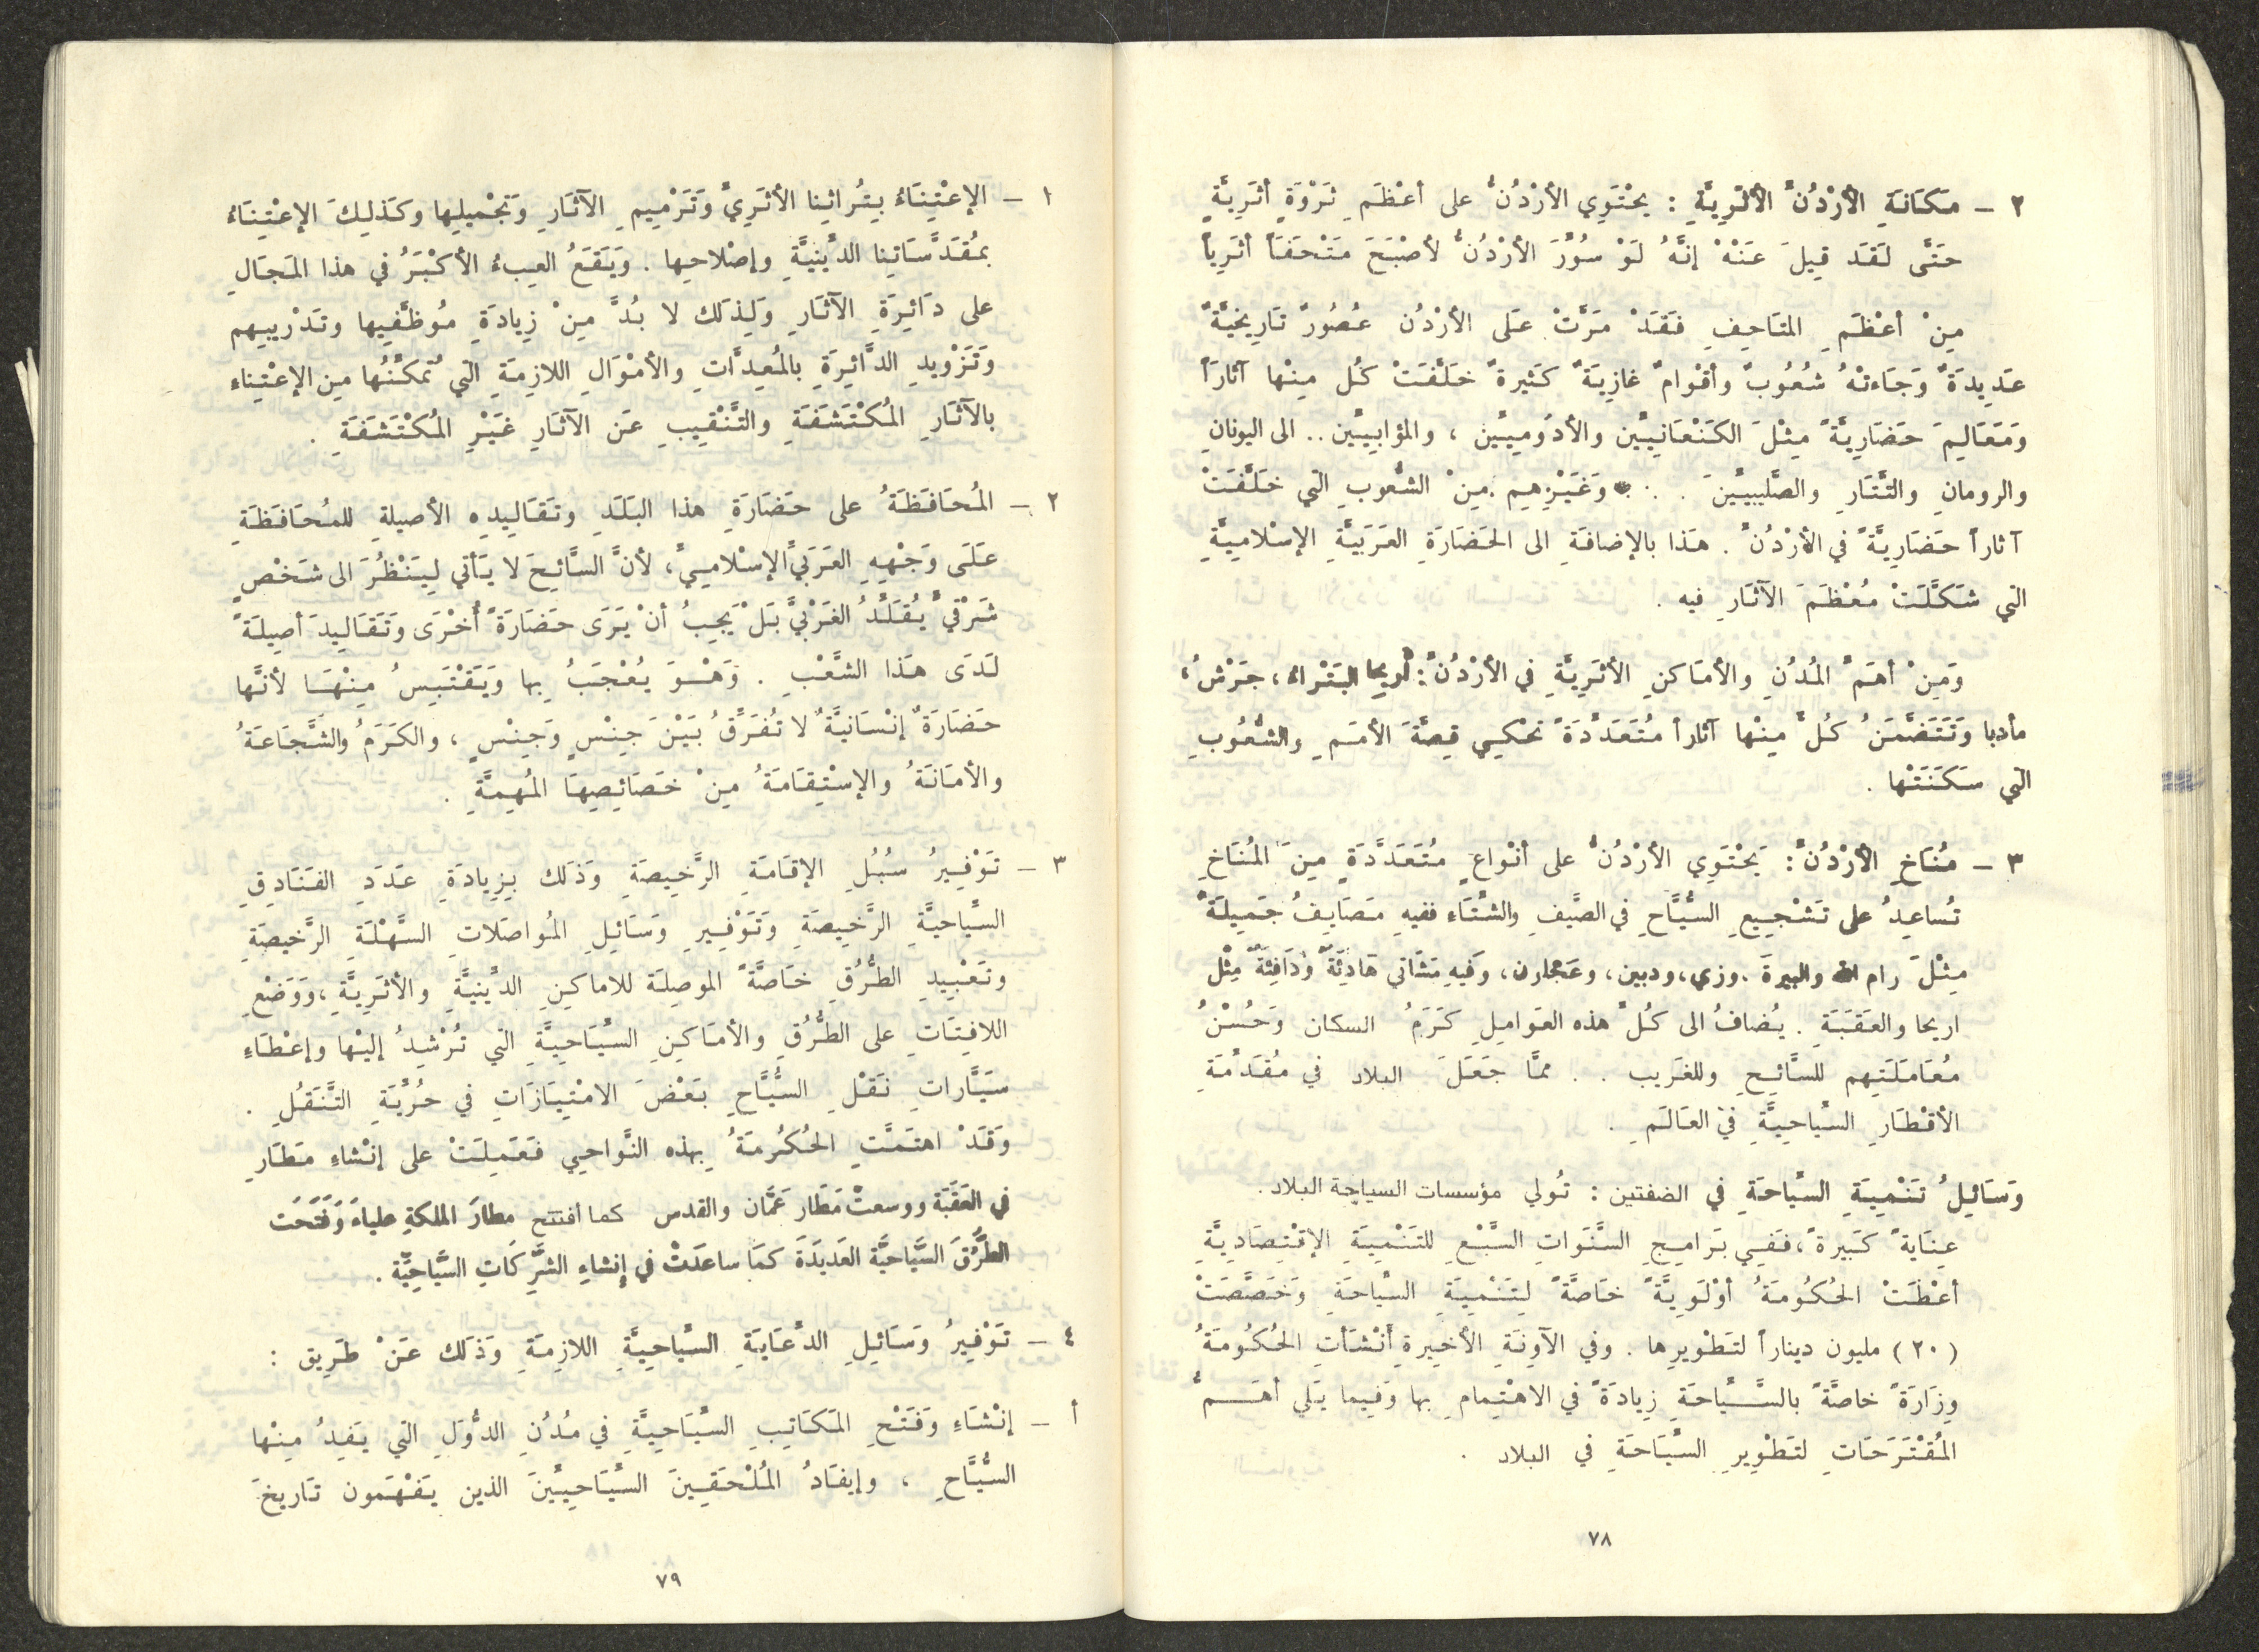 ٢ – مَكَانَةِ الأرْدُنِّ الأثَرِيَّةِ : يَحْتَوِي الأرْدُنُّ على أعْظَمِ ثَرْوَةٍ أثَرِيَّةٍ
حَتَّى لَقَد قِيلَ عَنْهُ إنَّهُ لَوْ سُوِّرَ الأرْدُنُّ لأصْبَحَ مَتْحَفَاً أثَرِياً
مِنْ أعْظَمِ المتَاحِفِ فَقَدْ مَرَّتْ عَلى الأرْدُن عُصُورٌ تَارِيخيَّةٌ
عَدِيدَةٌ وَجَاءتْهُ شُعُوبٌ وأقْوامٌ غازِيَةٌ كَثيرةٌ خَلَّفَتْ كُل مِنْها آثارَاً
وَمَعَالِمَ حَضَارِيَّةً مِثْلَ الكَنْعَانِيِّين والأدُومِيِّين ، والمؤابِيِّين .. الى اليونانِ
والرومانِ والتَّتَارِ والصَّلِيبيِّينَ . . . وَغَيْرِهِم مِنْ الشُّعُوبِ التي خَلَّفَتْ
آثاراً حَضَارِيَّةً في الأرْدُنِّ . هَذا بالإضافَةِ الى الحَضَارَةِ العَرَبيَّةِ الإسْلامِيَّةِ
التي شَكَّلَتْ مُعْظَمَ الآثَارِ فيه .
وَمِنْ أهَمِّ المُدُنِ والأمَاكنِ الأثَرِيَّةِ في الأرْدُنِّ : أريحا البَتْراءُ ، جَرْشُ ،
مأدبا وَتَتَضَّمَنُ كُلٌّ مِنْها آثاراً مُتَعَدِّدَةً تحْكِي قِصَّةَ الأمَمِ والشُّعُوبِ
التي سَكَنَتْها .
٣ – مُنَاخِ الأرْدُنِّ : يَحْتَوِي الأرْدُنُّ على أنْواعٍ مُتَعَدَّدَةٍ مِنَ المُنَاخِ
تُساعِدُ على تَشْجِيعِ السُّيَّاحِ في الصَّيفِ والشِّتَاءِ ففيهِ مَصَايِفُ جَمِيلَةٌ
مِثْلَ رام الله والبيرةَ . وزي ، ودبين ، وعَجْلون ، وَفيهِ مَشَاتي هَادِئَةٌ وَدَافِئَةٌ مِثْل
اريحا والعَقَبَةِ . يُضافُ الى كُلِّ هذه العَوامِلِ كَرَمُ السكان وَحُسْنُ
مُعَامَلَتِهم للسَّائِحِ وللغَريب . . ممَّا جَعَلَ البلاد في مُقَدِّمَةِ
الأقْطَارِ السِّياحِيَّةِ في العَالَمِ .
وَسَائِلُ تَنْمِيَةِ السِّياحَةِ في الضفتين : تُولي مؤسسات السياحة البلاد .
عِنَايةً كَبِيرةً ، فَفِي بَرامِجِ السَّنَوَاتِ السَّبْعِ للتَنْمِيَةِ الإقْتِصَادِيَّةِ
أعْطَتْ الحُكُومَةُ أوْلَوِيَّةً خَاصَّةً لِتَنْمِيَةِ السِّياحَةِ وَخَصَّصَتْ
( ٢٠ ) مليون ديناراً لتَطْويرِها . وفي الآوِنَةِ الأخيرةِ أنْشَأتِ الحُكُومَةُ
وِزَارَةً خاصَّةً بالسِّيَّاحَةِ زِيادَةً في الاهْتِمامِ بها وَفِيما يَلي أهَمُّ
المُقْتَرَحَاتِ لتَطْوِيرِ السِّيَاحَةِ في البلاد .
٧٨
١ – الإعْتِنَاءُ بِتُراثِنا الأثَرِيِّ وَتَرْمِيمِ الآثَارِ وَتَجْميلِها وكَذلِكَ الإعْتِنَاءُ
بمُقَدَّسَاتِنا الدِّينيَّةِ وإصْلاحِها . وَيَقَعُ العِبءُ الأكْبَرُ في هذا المَجَالِ
على دَائِرَةِ الآثَارِ وَلِذلَك لا بُدَّ مِنْ زِيادَةِ مُوظَّفِيها وتَدْرِيبِهم
وَتَزْويدِ الدَّائِرَةِ بالمُعِدَّاتِ والأمْوَالِ اللازِمَةِ التي تُمَكِّنُها مِن الإعْتِناءِ
بالآثَارِ المُكْتَشَفَةِ والتَّنْقِيبِ عَن الآثَارِ غَيْرِ المُكْتَشَفَةِ .
٢ – المُحَافَظَةُ على حَضَارَةِ هذا البَلَدِ وتَقَالِيدِه الأصيلةِ للمُحَافَظَةِ
عَلَى وَجْهِهِ العَرَبيِّ الإسْلامِيِّ ، لأنَّ السَّائِحَ لا يَأتي لِيَنْظُرَ الى شَخْصٍ
شَرْقيٍّ يُقَلِّدُ الغَرْبيَّ بَلْ يَجِبُ أنْ يَرَى حَضَارَةً أُخْرَى وَتَقَالِيدَ أصِيلَةً
لَدَى هَذا الشَّعْبِ . وَهْوَ يُعْجَبُ بِها وَيَقْتَبِسُ مِنْهَا لأنَّها
حَضَارَةٌ إنْسَانيَّةٌ لا تُفَرِّقُ بَيْنَ جِنْسٍ وَجِنْسٍ ، والكَرَمُ والشَّجَاعَةُ
والأمَانَةُ والإسْتِقَامَةُ مِنْ خَصَائِصِهَا المُهِمَّةِ .
٣ – تَوْفِيرُ سُبُلِ الإقَامَةِ الرَّخِيصَةِ وَذَلك بِزِيادَةِ عَدَدِ الفَنَادِقِ
السِّياحيَّةِ الرَّخِيصَةِ وَتَوْفِيرِ وَسَائِلِ المُواصَلاتِ السَّهْلَةِ الرَّخيصَةِ
وتَعْبِيدِ الطُّرُقِ خَاصَّةً الموصِلَة للاماكِنِ الدِّينيَّةِ والأثَرِيَّةِ ، وَوَضْعِ
اللافِتَاتِ على الطُّرُقِ والأمَاكِنِ السِّيَاحِيَّةِ التي تُرْشِدُ إليْها وإعْطَاءِ
سَيَّاراتِ نَقْلِ السُّيَّاحِ بَعْضَ الامْتِيَازَاتِ في حُرِّيَّةِ التَّنَقُلِ .
وَقَدْ اهتَمَّتِ الحُكُومَةُ بِهذه النَّواحِي فَعَمِلَتْ على إنْشاءِ مَطَارِ
في العَقَبَة ووسعتْ مَطَار عَمَّان والقدس كما افتتح مطارَ الملكةِ علياءَ وَفَتَحَت
الطُّرُقَ السِّيَاحيَّة العَديدَةَ كمَا ساعَدَتْ في إنشاءِ الشَّرِكَاتِ السِّيَاحِيَّة .
٤ – تَوْفِيرُ وَسَائِلِ الدِّعَايَةِ السِّياحِيَّةِ اللازِمَةِ وَذَلك عَنْ طَرِيق :
أ – إنْشَاءِ وَفَتْحِ المَكَاتِبِ السِّيَاحِيَّةِ في مُدُنِ الدُّوَلِ التي يَفِدُ مِنْها
السُّيَّاحِ ، وإيفَادُ المُلْحَقِينَ السِّيَاحِيِّينَ الذين يَفْهَمون تَاريخَ
٧٩